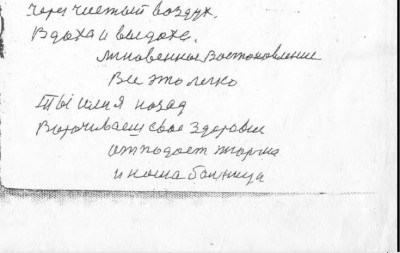 Через чистый воздух.
Вдоха и выдоха.
Мгновенное Востоновление
Все это легко
Ты или я назад
Ворочиваеш свое Здоровие
отподает
и наша